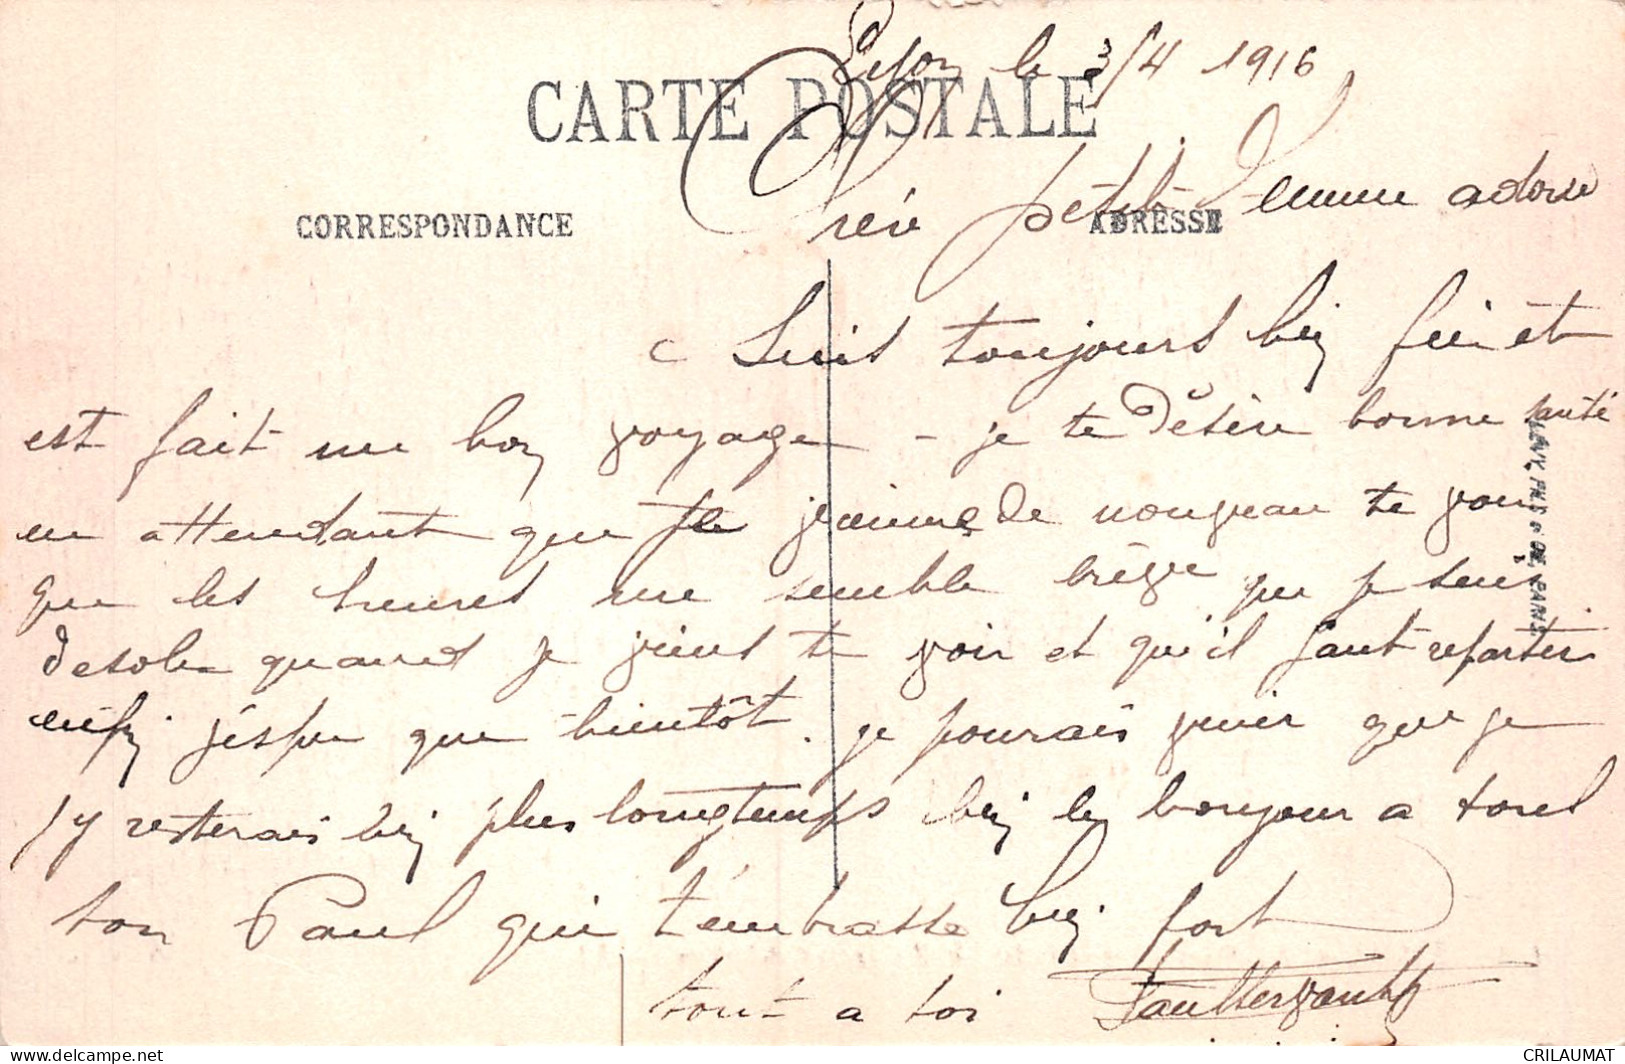 Lyon le 3/4 1916
CARTE POSTALE
Chère petite femme adorée
CORRESPONDANCE
ADRESSE
Suis toujours bien fini et
est fait un bon voyage – je te désire bonne santé
en attendant que je vienne de nouveau te voir
que les heures me semble brève que je suis
desole quand je viens te voir et qu'il faut repartir
enfin j'éspère que bientôt. je pourais venir que je
j'y resterais bien plus longtemps bien le bonjour a tous
ton Paul qui t'émbrasse bien fort
tout a toi
LEVY FILS & CIE, PARIS
CRILAUMAT